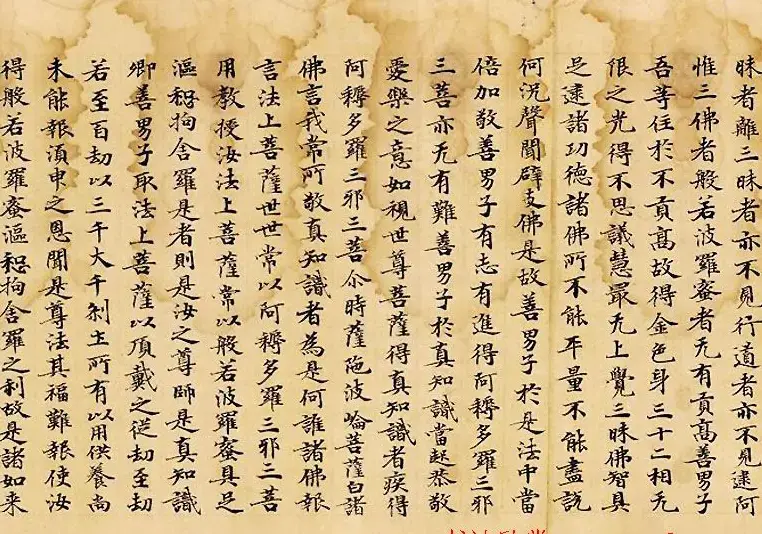 昧者離三昧者亦不見行道者亦不見逮阿
惟三佛者般若波羅蜜者无有貢高善男子
吾等住於不貢高故得金色身三十二相无
限之光得不思議慧最无上覺三昧佛智具
足逮諸功德諸佛所不能平量不能盡說
何況聲聞辟支佛是故善男子於是法中當
倍加敬善男子有志有進得阿耨多羅三邪
三菩亦无有難善男子於真知識當起恭敬
愛樂之意如視世尊菩薩得真知識者疾得
阿耨多羅三邪三菩尒時薩陁波崘菩薩白諸
佛言我常所敬真知識者為是何誰諸佛報
言法上菩薩世世常以阿耨多羅三邪三菩
用教授汝法上菩薩常以般若波羅蜜具足
漚惒拘舍羅是者則是汝之尊師是真知識
卿善男子取法上菩薩以頂戴之從劫至劫
若至百劫以三千大千剎土所有以用供養尚
未能報湏申之恩聞是尊法其福難報使汝
得般若波羅蜜漚惒拘舍羅之利故是諸如来